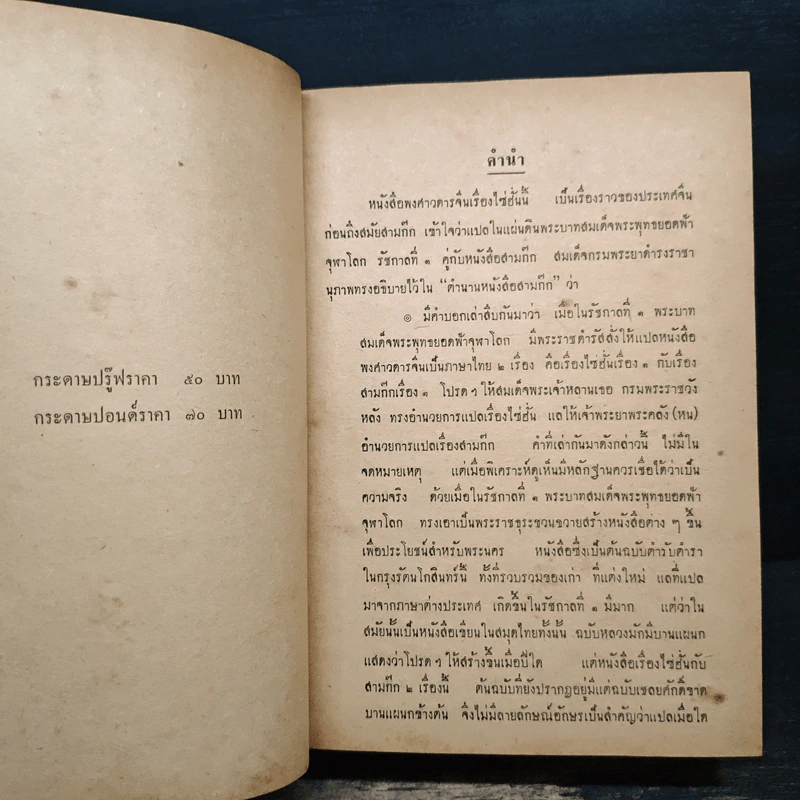 กระดาษปรู๊ฟราคา ๕๐ บาท
กระดาษปอนด์ราคา ๗๐ บาท
คำนำ
หนังสือพงศาวดารจีนเรื่องไซ่ฮั่นนี้ เป็นเรื่องราวของประเทศจีน
ก่อนถึงสมัยสามก๊ก เข้าใจว่าแปลในแผ่นดินพระบาทสมเด็จพระพุทธยอดฟ้า
จุฬาโลก รัชกาลที่ ๑ คู่กับหนังสือสามก๊ก สมเด็จกรมพระยาดำรงราชา
นุภาพทรงอธิบายไว้ใน “ตำนานหนังสือสามก๊ก” ว่า
๏ มีคำบอกเล่าสืบกันมาว่า เมื่อในรัชกาลที่ ๑ พระบาท
สมเด็จพระพุทธยอดฟ้าจุฬาโลก มีพระราชดำรัสสั่งให้แปลหนังสือ
พงศาวดารจีนเป็นภาษาไทย ๒ เรื่อง คือเรื่องไซ่ฮั่นเรื่อง ๑ กับเรื่อง
สามก๊กเรื่อง ๑ โปรด ฯ ให้สมเด็จพระเจ้าหลานเธอ กรมพระราชวัง
หลัง ทรงอำนวยการแปลเรื่องไซ่ฮั่น แลให้เจ้าพระยาพระคลัง (หน)
อำนวยการแปลเรื่องสามก๊ก คำที่เล่ากันมาดังกล่าวนี้ ไม่มีใน
จดหมายเหตุ แต่เมื่อพิเคราะห์ดูเห็นมีหลักฐานควรเชื่อได้ว่าเป็น
ความจริง ด้วยเมื่อในรัชกาลที่ ๑ พระบาทสมเด็จพระพุทธยอดฟ้า
จุฬาโลก ทรงเอาเป็นพระราชธุระขวนขวายสร้างหนังสือต่าง ๆ ขึ้น
เพื่อประโยชน์สำหรับพระนคร หนังสือซึ่งเป็นต้นฉบับตำรับตำรา
ในกรุงรัตนโกสินทร์นี้ ทั้งที่รวบรวมของเก่า ที่แต่งใหม่ แลที่แปล
มาจากภาษาต่างประเทศ เกิดขึ้นในรัชกาลที่ ๑ มีมาก แต่ว่าใน
สมัยนั้นเป็นหนังสือเขียนในสมุดไทยทั้งนั้น ฉบับหลวงมักมีบานแผนก
แสดงว่าโปรด ฯ ให้สร้างขึ้นเมื่อปีใด แต่หนังสือเรื่องไซ่ฮั่นกับ
สามก๊ก ๒ เรื่องนี้ ต้นฉบับที่ยังปรากฏอยู่มีแต่ฉบับเชลยศักดิ์ขาด
บานแผนกข้างต้น จึงไม่มีลายลักษณ์อักษรเป็นสำคัญว่าแปลเมื่อใด